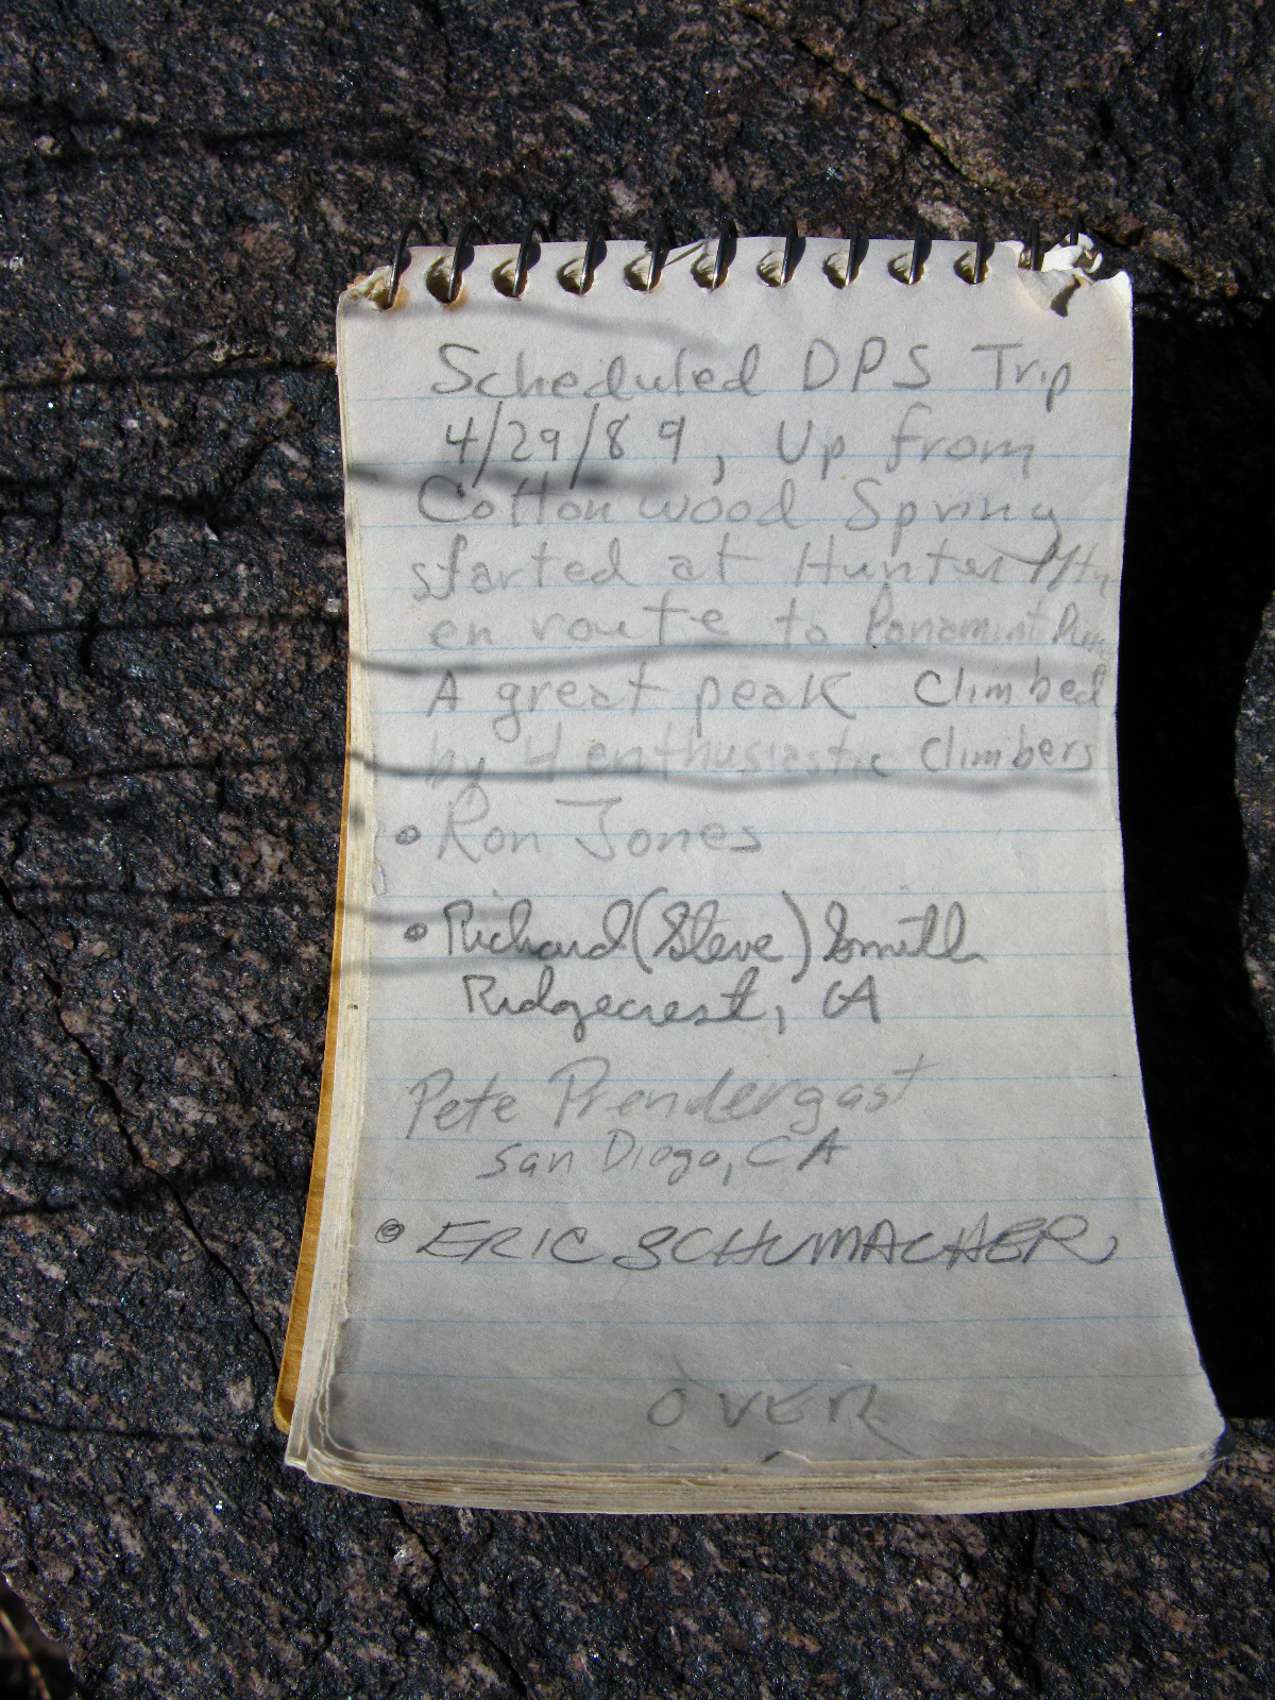 Scheduled DPS Trip
4/29/89, Up from
Cottonwood Spring
started at Hunter Mtn
en route to Panamint Dunes
A great peak climbed
by 4 enthusiastic climbers
Ron Jones
Richard (Steve) Smith
Ridgecrest, CA
Pete Prendergast
San Diego, CA
ERIC SCHUMACHER
OVER